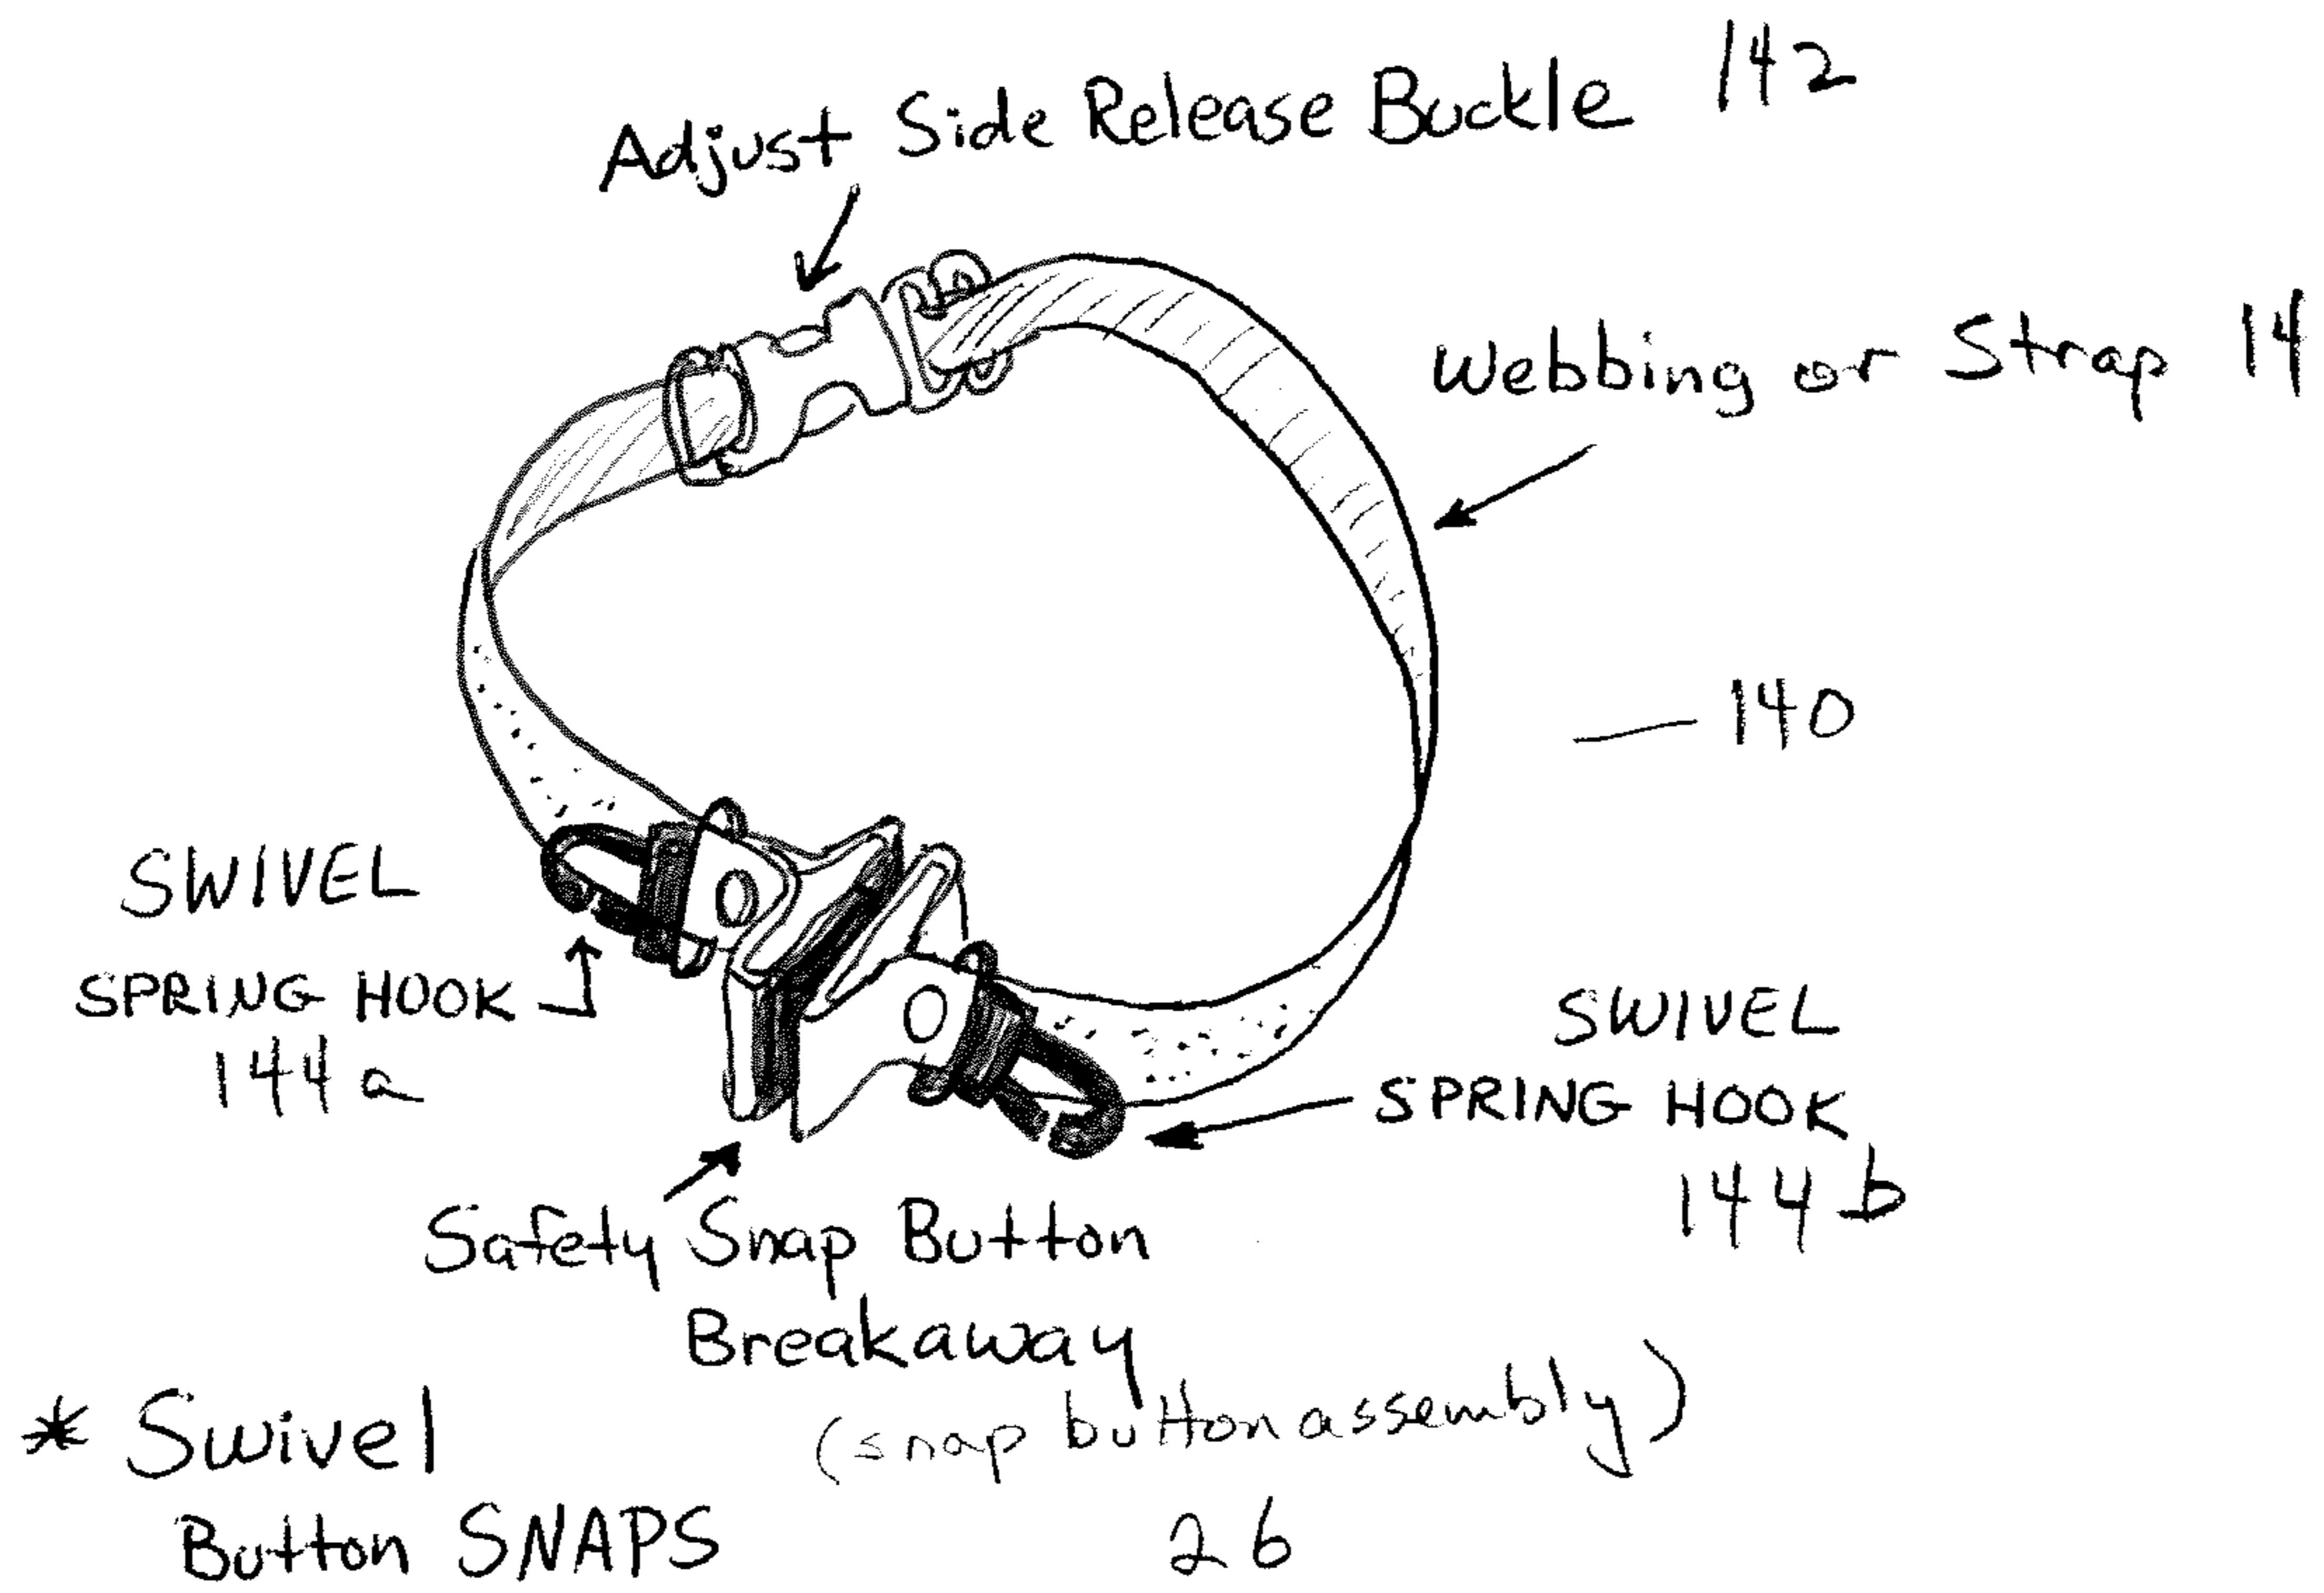 Adjust Side Release Buckle 142
Webbing or Strap 14
140
SWIVEL
SPRING HOOK
144a
SWIVEL
SPRING HOOK
144b
Safety Snap Button
Breakaway
(snap button assembly)
26
* Swivel
Button SNAPS